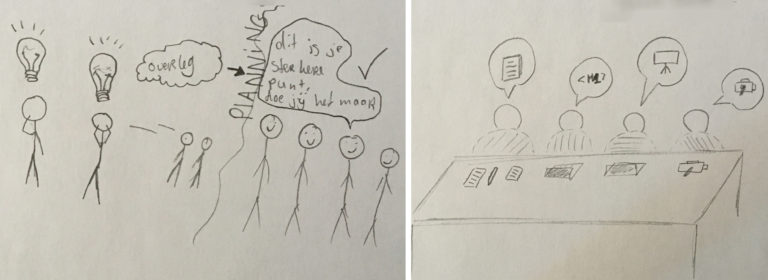 overleg
PLANNING
dit is je
sterkere
punt,
doe jij het maar
<H1>